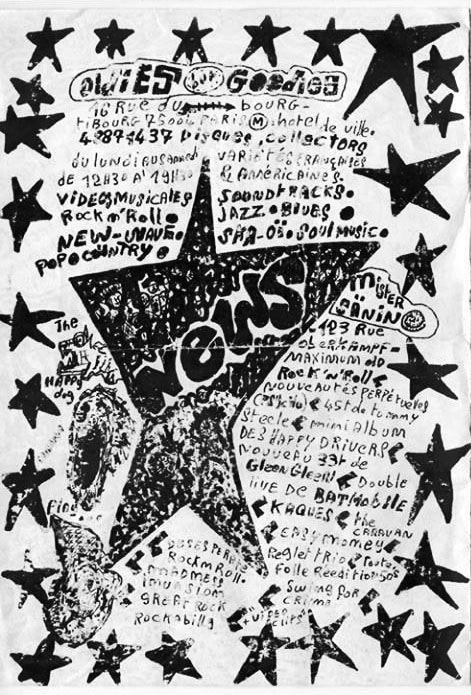 OLDIES BUT GOODIES
16 RUE DU BOURG-
TIBOURG 75004 PARIS M. HOTEL de VILLE.
48871437 DISQUES, COLLECTORS
du LUNDI AU SAMEDI
de 12H30 A 19H30
VARIETES FRANÇAISES
& AMÉRICAINES.
VIDEOS MUSICALES
ROCK n' ROLL.
NEW-WAVE.
POP COUNTRY.
SOUNDTRACKS.
JAZZ. BLUES
SKA-OI. SOUL MUSIC.
NEWS
MISTER
GANIN
123 RUE
OBERKAMPF-
MAXIMUM OLD
ROCK 'N' ROLL
NOUVEAUTÉS PERPETUELLES
45t de TOMMY
STEELE
MINI ALBUM
DES HAPPY DRIVERS
NOUVEAU 33t de
GLEEN GLEEN
Double
LIVE DE BATMOBILE
KAQUES
the
CARAVAN
EASY MONEY
REGLETTRIO
FOLLE REEDITIONS
SWING FOR
CRIME
The
HAPPY
dog
ROCK n ROLL.
MADNESS
GREAT ROCK
ROCKABILLY